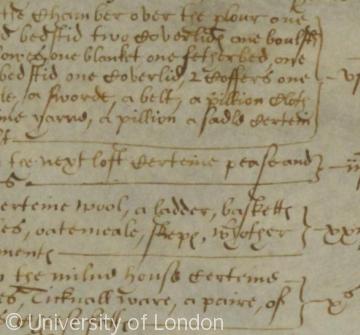 the Chamber over the plour one
bedstid two Coverlids one boulster
one blanket one fetherbed, one
bedstid one Coverlid, 2 Coffers one
a sworde, a belt, a pillion Cloth
yarne, a pillion a sadle Certein
the next loft Certeine pease and
Certeine wool, a ladder, basketts
oatemeale, other
the milne house Certeine
Ticknall ware, a paire, of
xˢ
© University of London